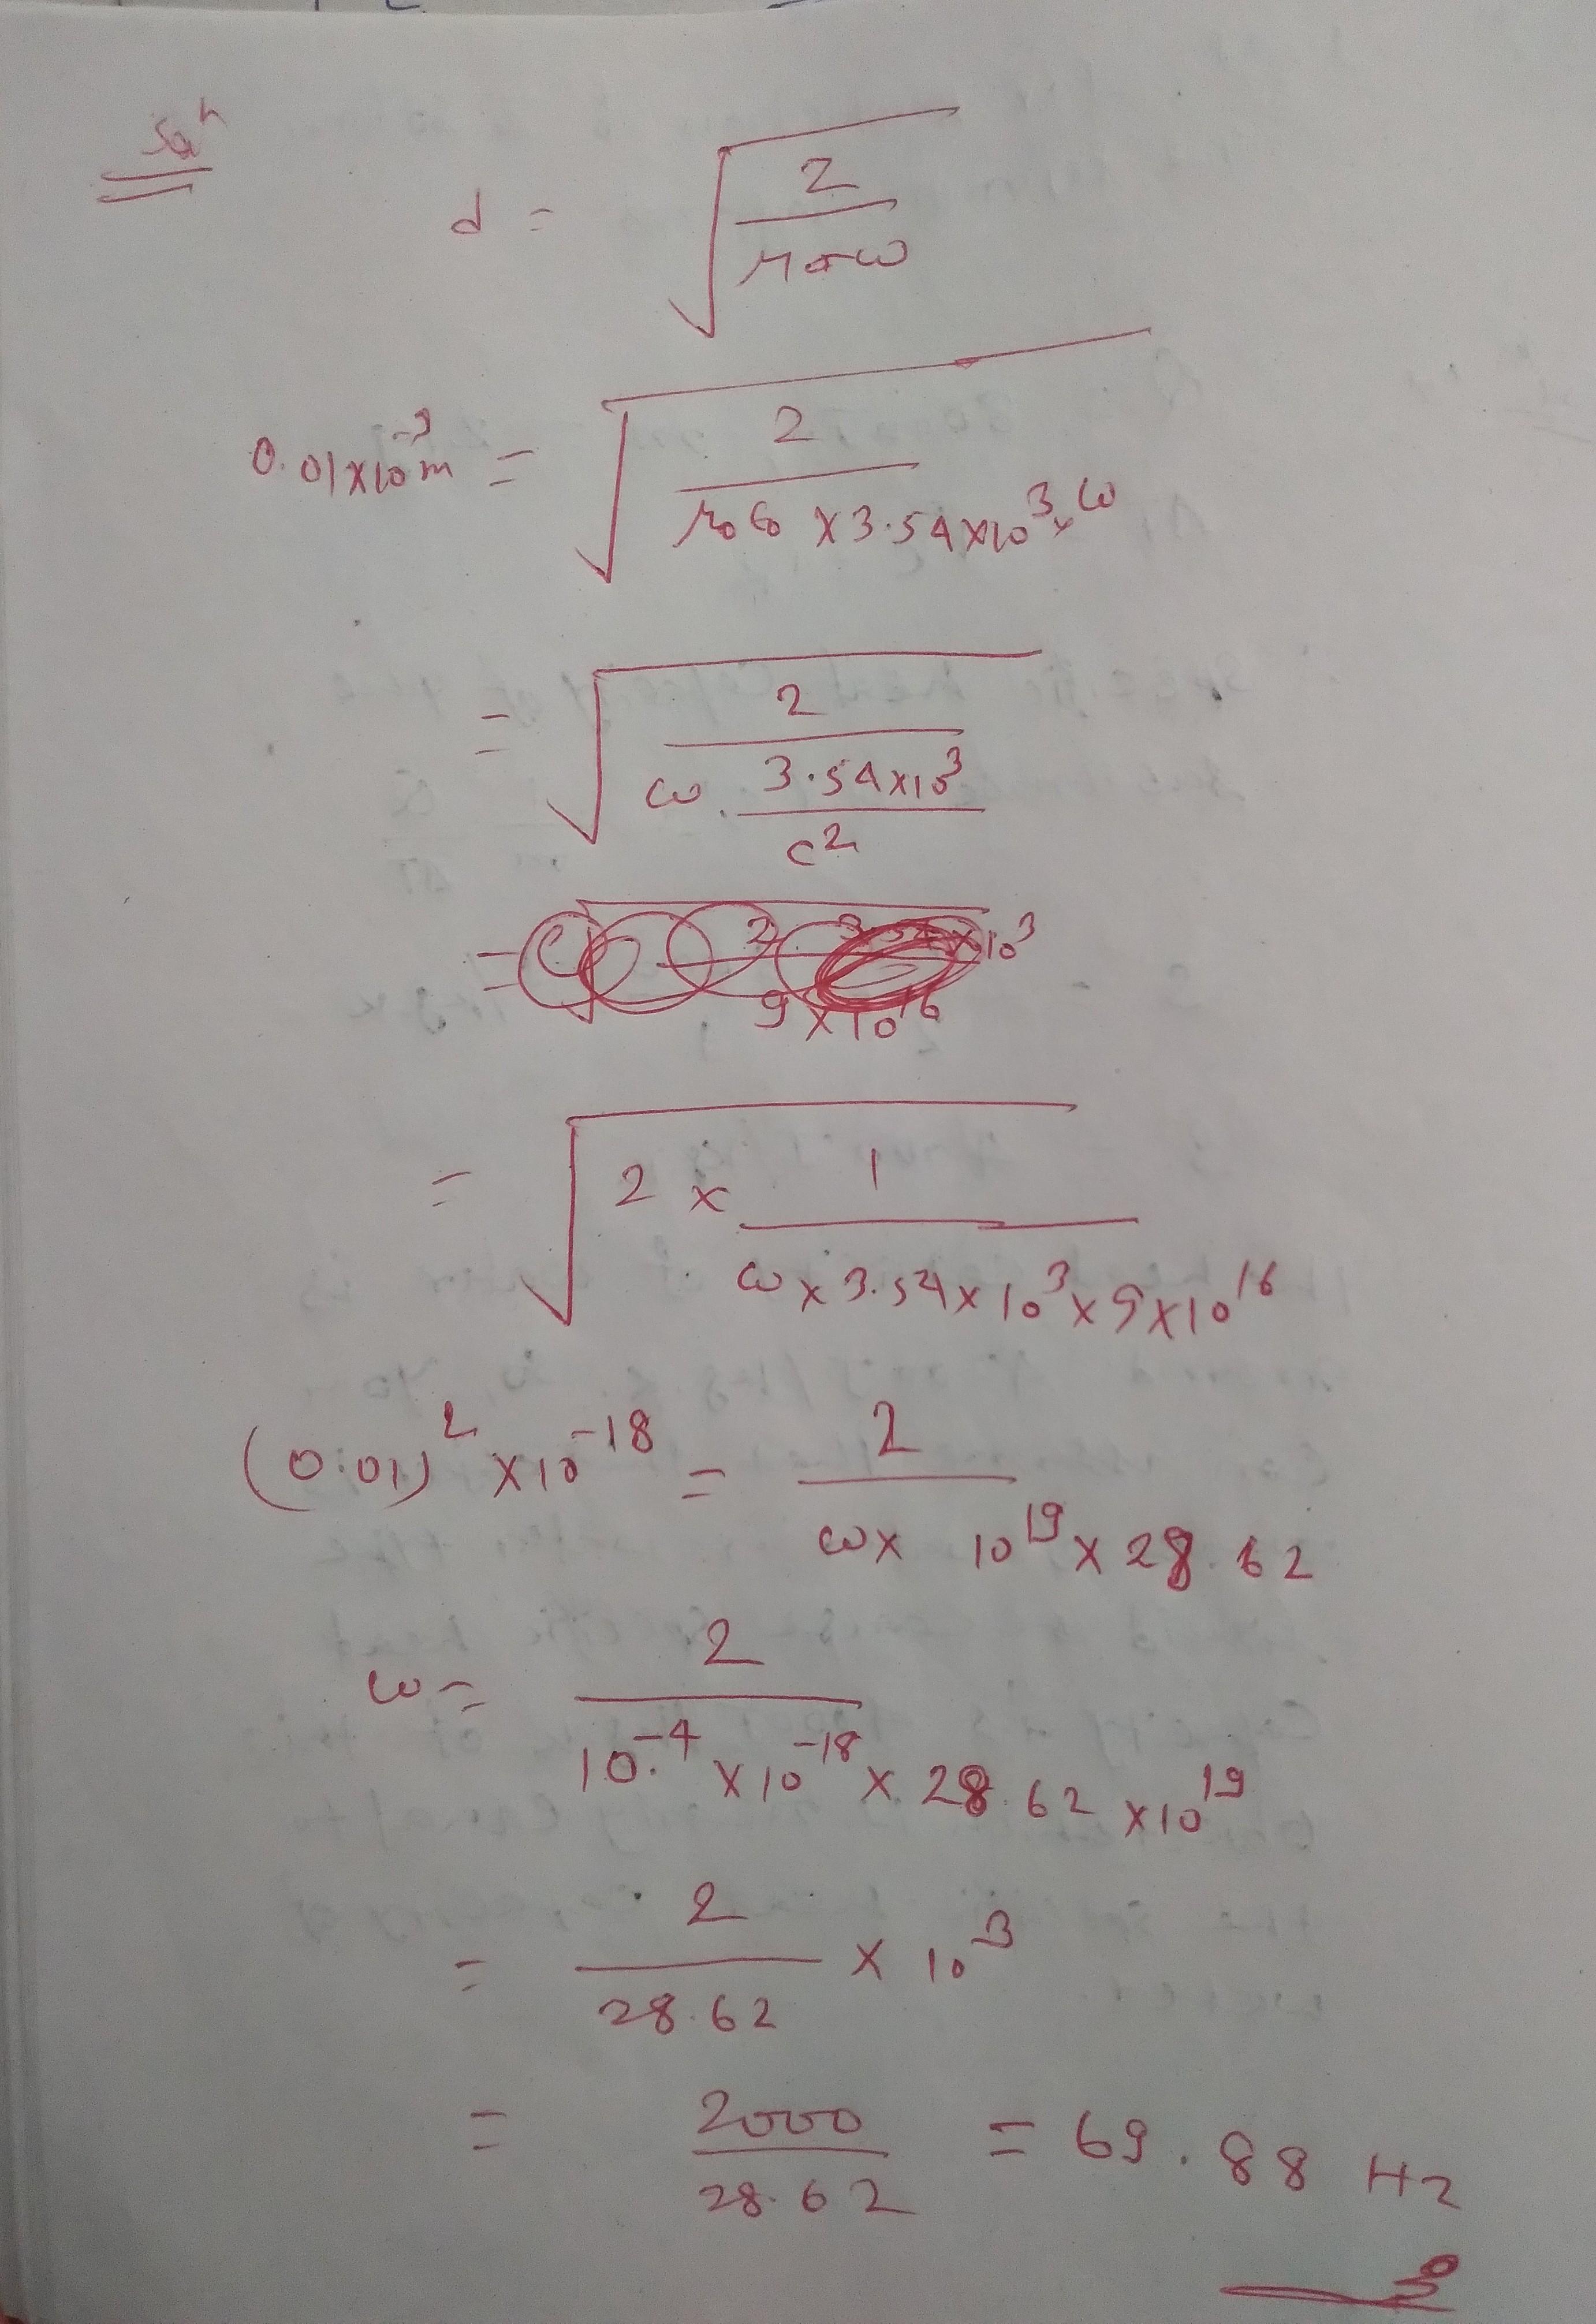 Solⁿ
d = √(2/μσω)
0.01×10⁻⁹m = √(2/μ₀ε₀ × 3.54×10³×ω)
= √(2/ω. 3.54×10³/c²)
= 2 3.54×10³/9×10¹⁶
= √(2 × 1/ω×3.54×10³×9×10¹⁶)
(0.01)² ×10⁻¹⁸ = 2/ω× 10¹⁹ × 28.62
ω = 2/10⁻⁴ ×10⁻¹⁸ × 28.62 ×10¹⁹
= 2/28.62 × 10³
= 2000/28.62 = 69.88 Hz